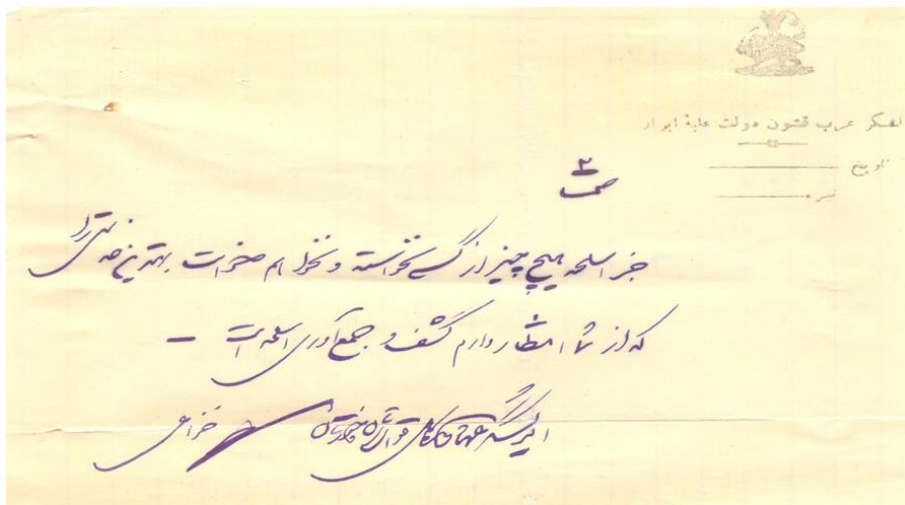 لشکر غرب قشون دولت علیه ایران
تاریخ
نمره
ص ۲
جز اسلحه هیچ چیز از کسی نخواسته و نخواهم خواست بهترین خدمتی را
که از شما انتظار دارم کشف و جمع آوری اسلحه است –
امیر لشکر خزاعی